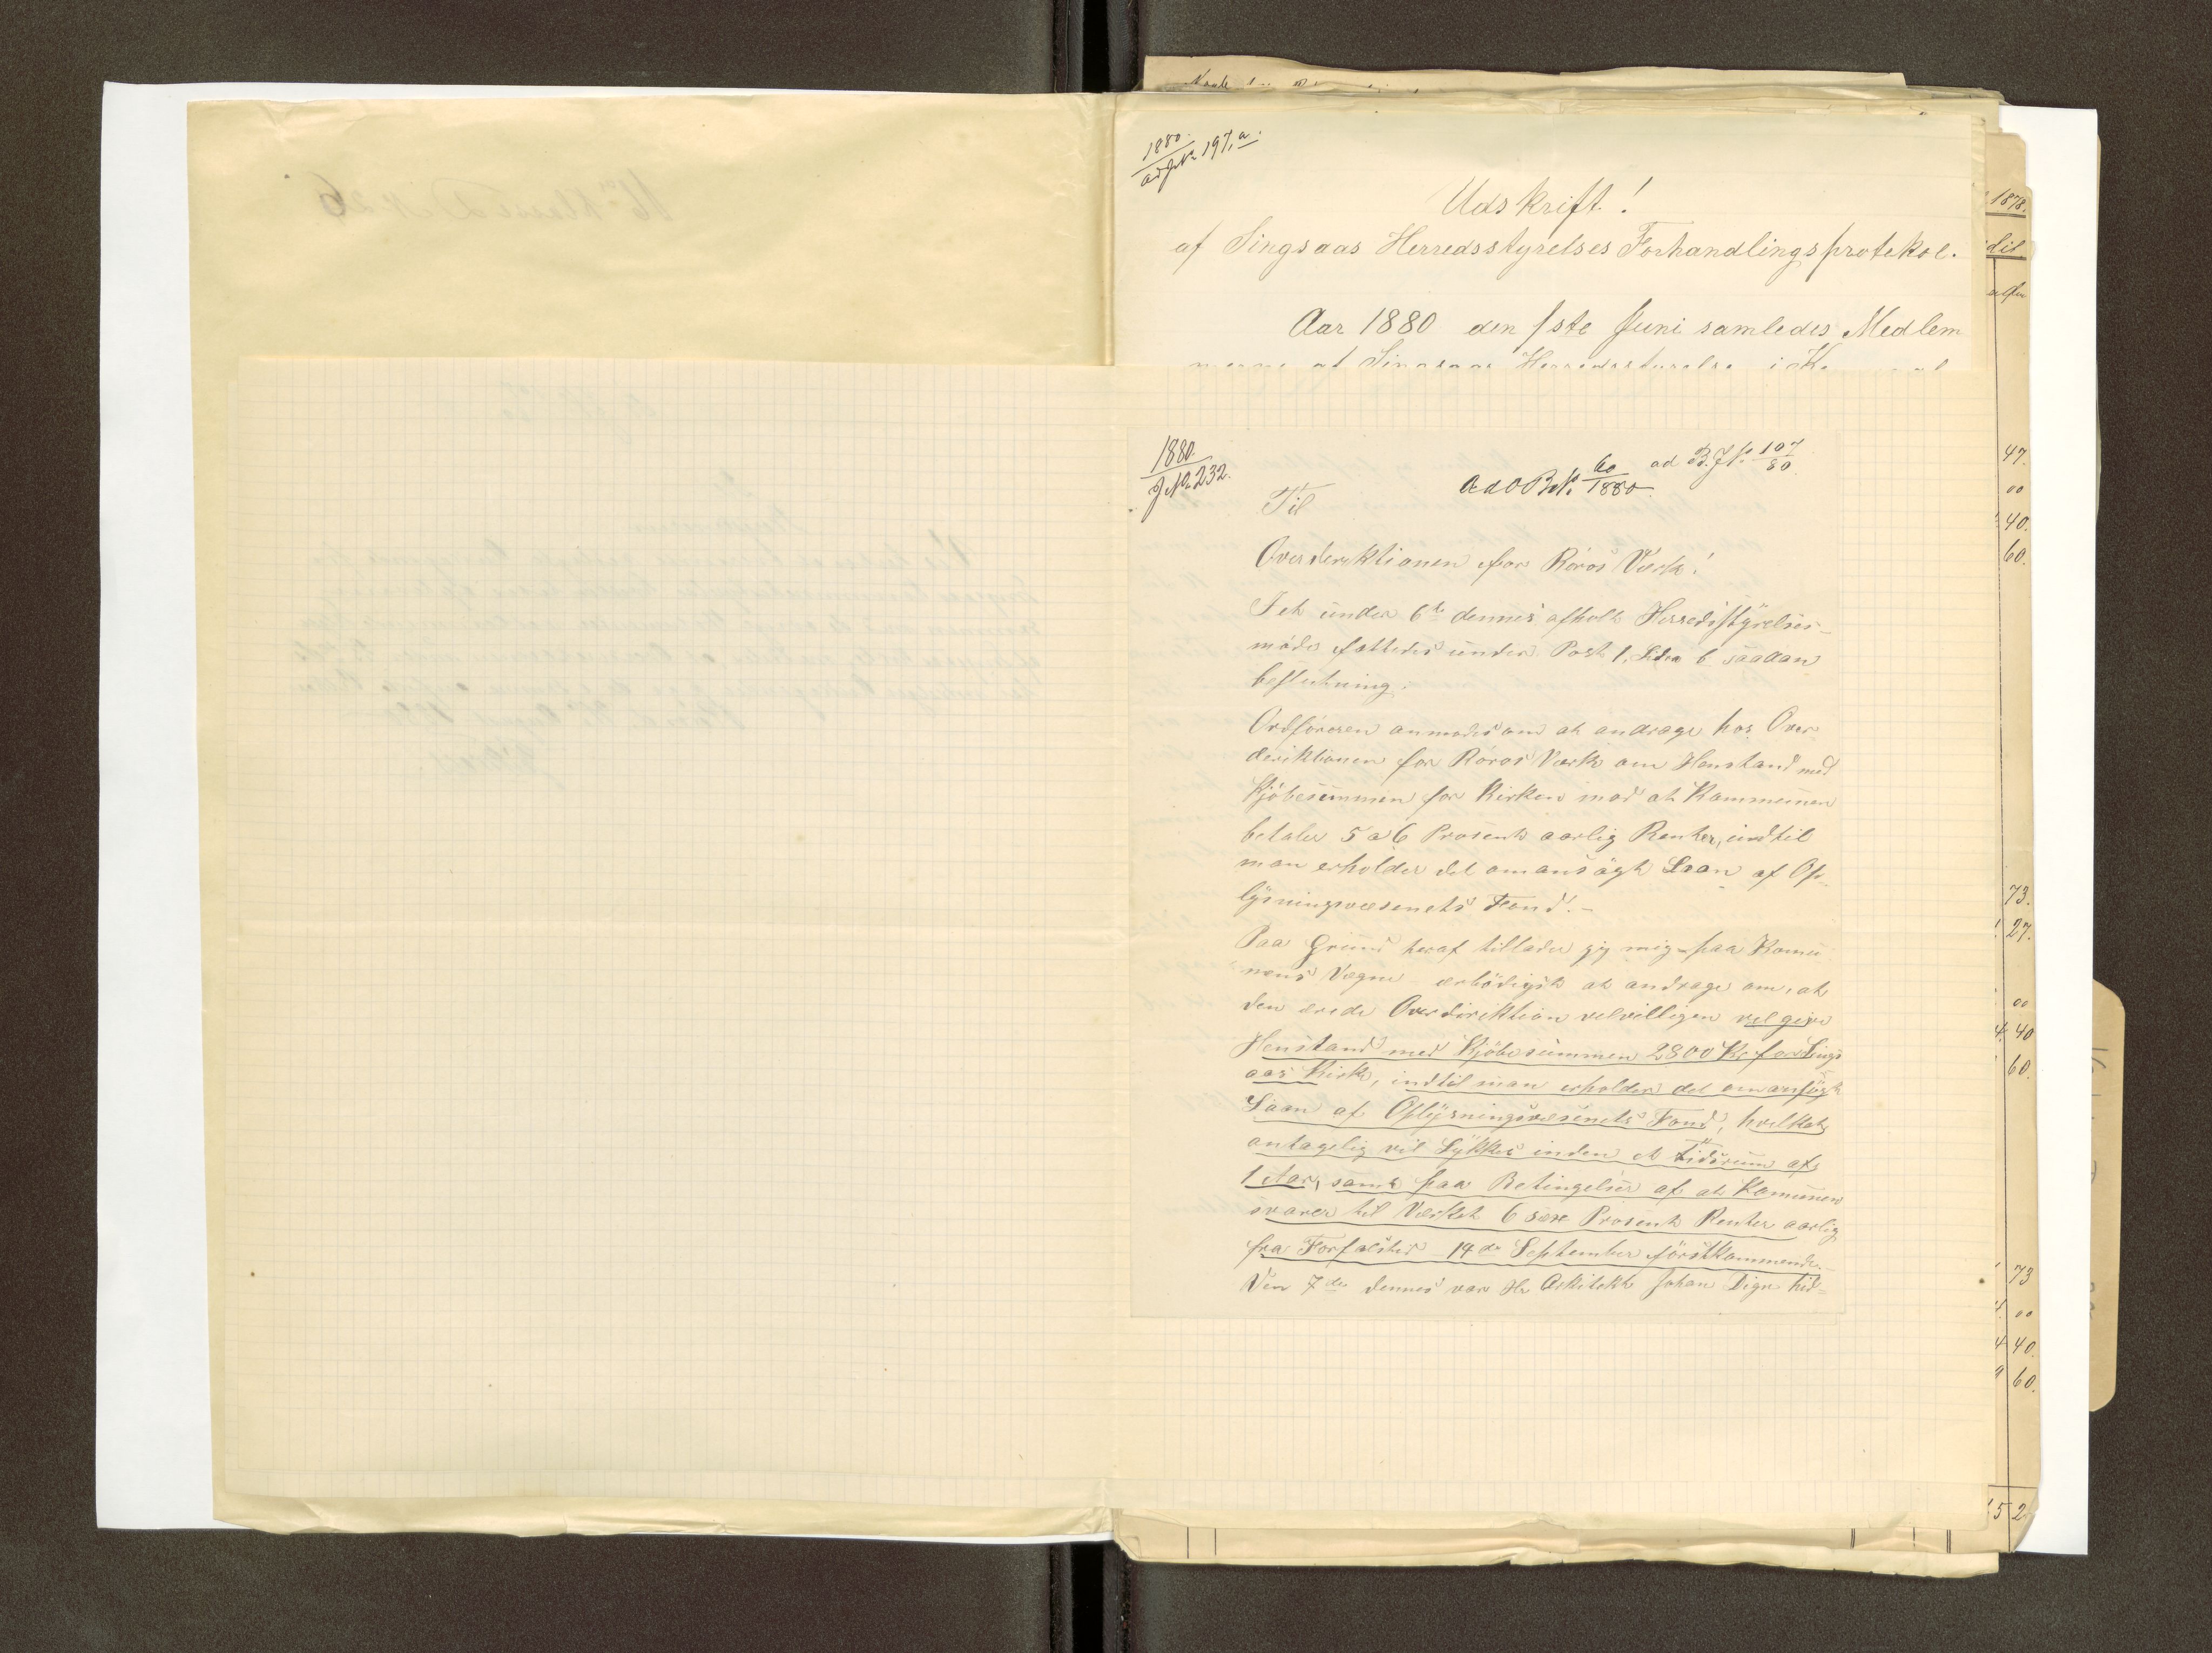 1880.
ad J.No. 197,a.
Udskrift!
af Singsaas Herredsstyrelses Forhandlingsprotekol.
Aar 1880 den 1ste Juni samledes Medlem
merne af Singsaas Herredsstyrelse i
1880.
J.No. 232.
ad O B No. 60/1880.
ad B.J.N. 107/80.
Til
Overderektionen for Röros Værk!
I et under 6te dennes afholt Herredsstyrelses-
möde fattedes under Post 1, Litra 6 saadan
beslutning:
Ordföreren anmodes om at andrage hos Over-
derektionen for Röros Værk om Henstand med
Kjöbesummen for Kirken mod at Kommunen
betaler 5 a 6 Prosent aarlig Renter, indtil
man erholder det omansögte Laan af Op-
lysningsvæsenets Fond.-
Paa Grund heraf tillader jeg mig paa Komu
nens Vegne ærbödigst at andrage om, at
den ærede Overdirektion velvilligen vil give
Henstand med Kjöbesummen 2800 Kr for Sings
aas Kirke, indtil man erholder det omansögte
Laan af Oplysningsvæsenets Fond, hvilket
antagelig vil Lykkes inden et Tidsrum af
1 Aar, samt paa Betingelser af at Komunen
svarer til Værket 6 sex Prosent Renter aarlig
fra Forfalstid 14de September förstkommende.-
Den 7de dennes var Hr Arkitekt Johan Digre hid-
1878.
47.
00
40.
60.
73.
27.
00
40
60.
73
00
40.
60.
52